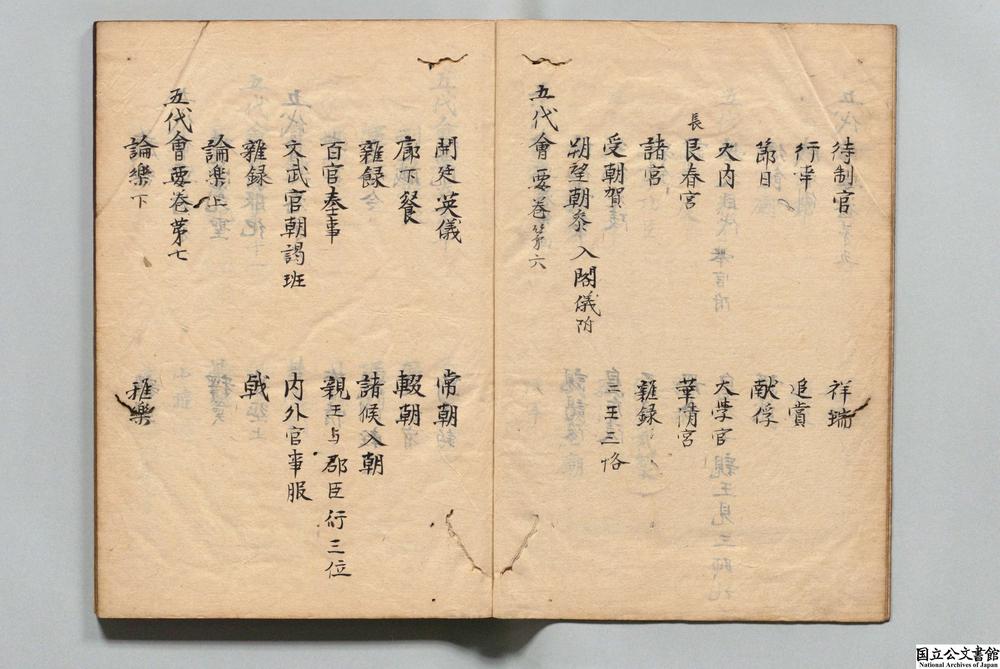 待制官　祥瑞
行幸　追賞
節日　献俘
大内　大学官
長
艮春宮　華清宮
諸宮　雜録
受朝賀　二王三恪
朔望朝叅　入閣儀附
五代會要卷第六
開延英儀　常朝
廊下餐　輟朝
雜録　諸候入朝
百官奉事　親王与郡臣行三位
文武官朝謁班　内外官章服
雜録　戟
論樂上
五代會要卷第七
論樂下　雅樂
国立公文書館
National Archives of Japan